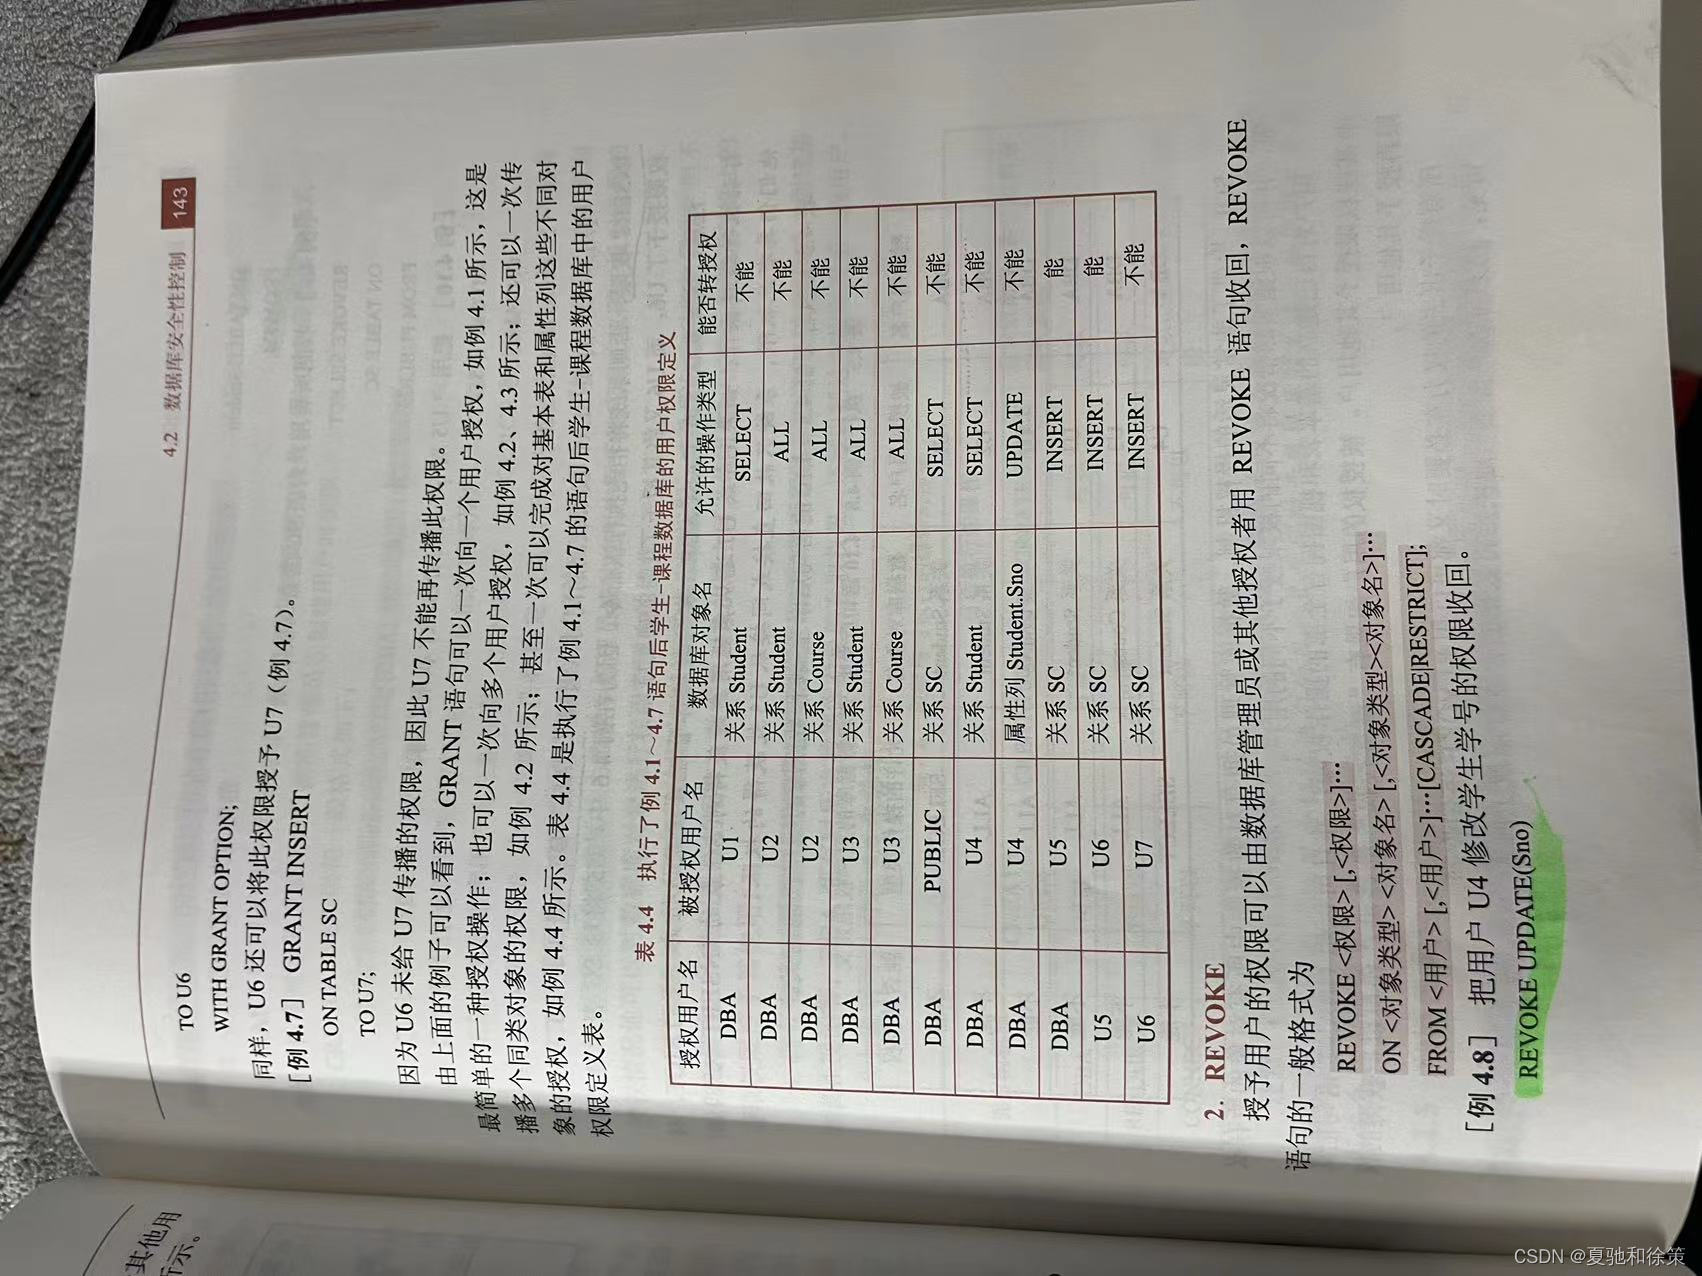 4.2 数据库安全性控制 143
TO U6
WITH GRANT OPTION;
同样，U6 还可以将此权限授予 U7（例 4.7）。
［例 4.7］ GRANT INSERT
ON TABLE SC
TO U7;
因为 U6 未给 U7 传播的权限，因此 U7 不能再传播此权限。
由上面的例子可以看到，GRANT 语句可以一次向一个用户授权，如例 4.1 所示，这是
最简单的一种授权操作；也可以一次向多个用户授权，如例 4.2、4.3 所示；还可以一次传
播多个同类对象的权限，如例 4.2 所示；甚至一次可以完成对基本表和属性列这些不同对
象的授权，如例 4.4 所示。表 4.4 是执行了例 4.1～4.7 的语句后学生-课程数据库中的用户
权限定义表。
表 4.4 执行了例 4.1～4.7 语句后学生-课程数据库的用户权限定义
授权用户名 被授权用户名 数据库对象名 允许的操作类型 能否转授权
DBA U1 关系 Student SELECT 不能
DBA U2 关系 Student ALL 不能
DBA U2 关系 Course ALL 不能
DBA U3 关系 Student ALL 不能
DBA U3 关系 Course ALL 不能
DBA PUBLIC 关系 SC SELECT 不能
DBA U4 关系 Student SELECT 不能
DBA U4 属性列 Student.Sno UPDATE 不能
DBA U5 关系 SC INSERT 能
U5 U6 关系 SC INSERT 能
U6 U7 关系 SC INSERT 不能
2. REVOKE
授予用户的权限可以由数据库管理员或其他授权者用 REVOKE 语句收回，REVOKE
语句的一般格式为
REVOKE <权限> [,<权限>]…
ON <对象类型> <对象名> [,<对象类型><对象名>]…
FROM <用户> [,<用户>]…[CASCADE|RESTRICT];
［例 4.8］ 把用户 U4 修改学生学号的权限收回。
REVOKE UPDATE(Sno)
其他用
所示。
CSDN @夏驰和徐策